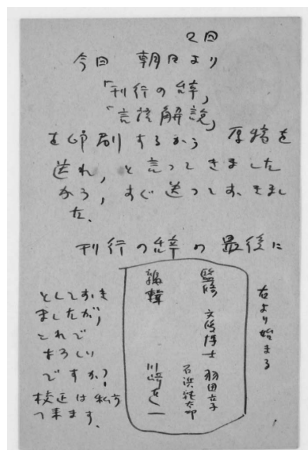 2日
今日 朝日より
「刊行の辞」
「言語解説」
を印刷するから 原稿を
送れ、と言ってきました
から、すぐ送っておきまし
た。
刊行の辞の最後に
右より始まる
監修 文学博士 羽田亨
石浜純太郎
編輯 川崎
としておき
ましたが、
これで
よろしい
ですか?
校正は私う
つ来ます。